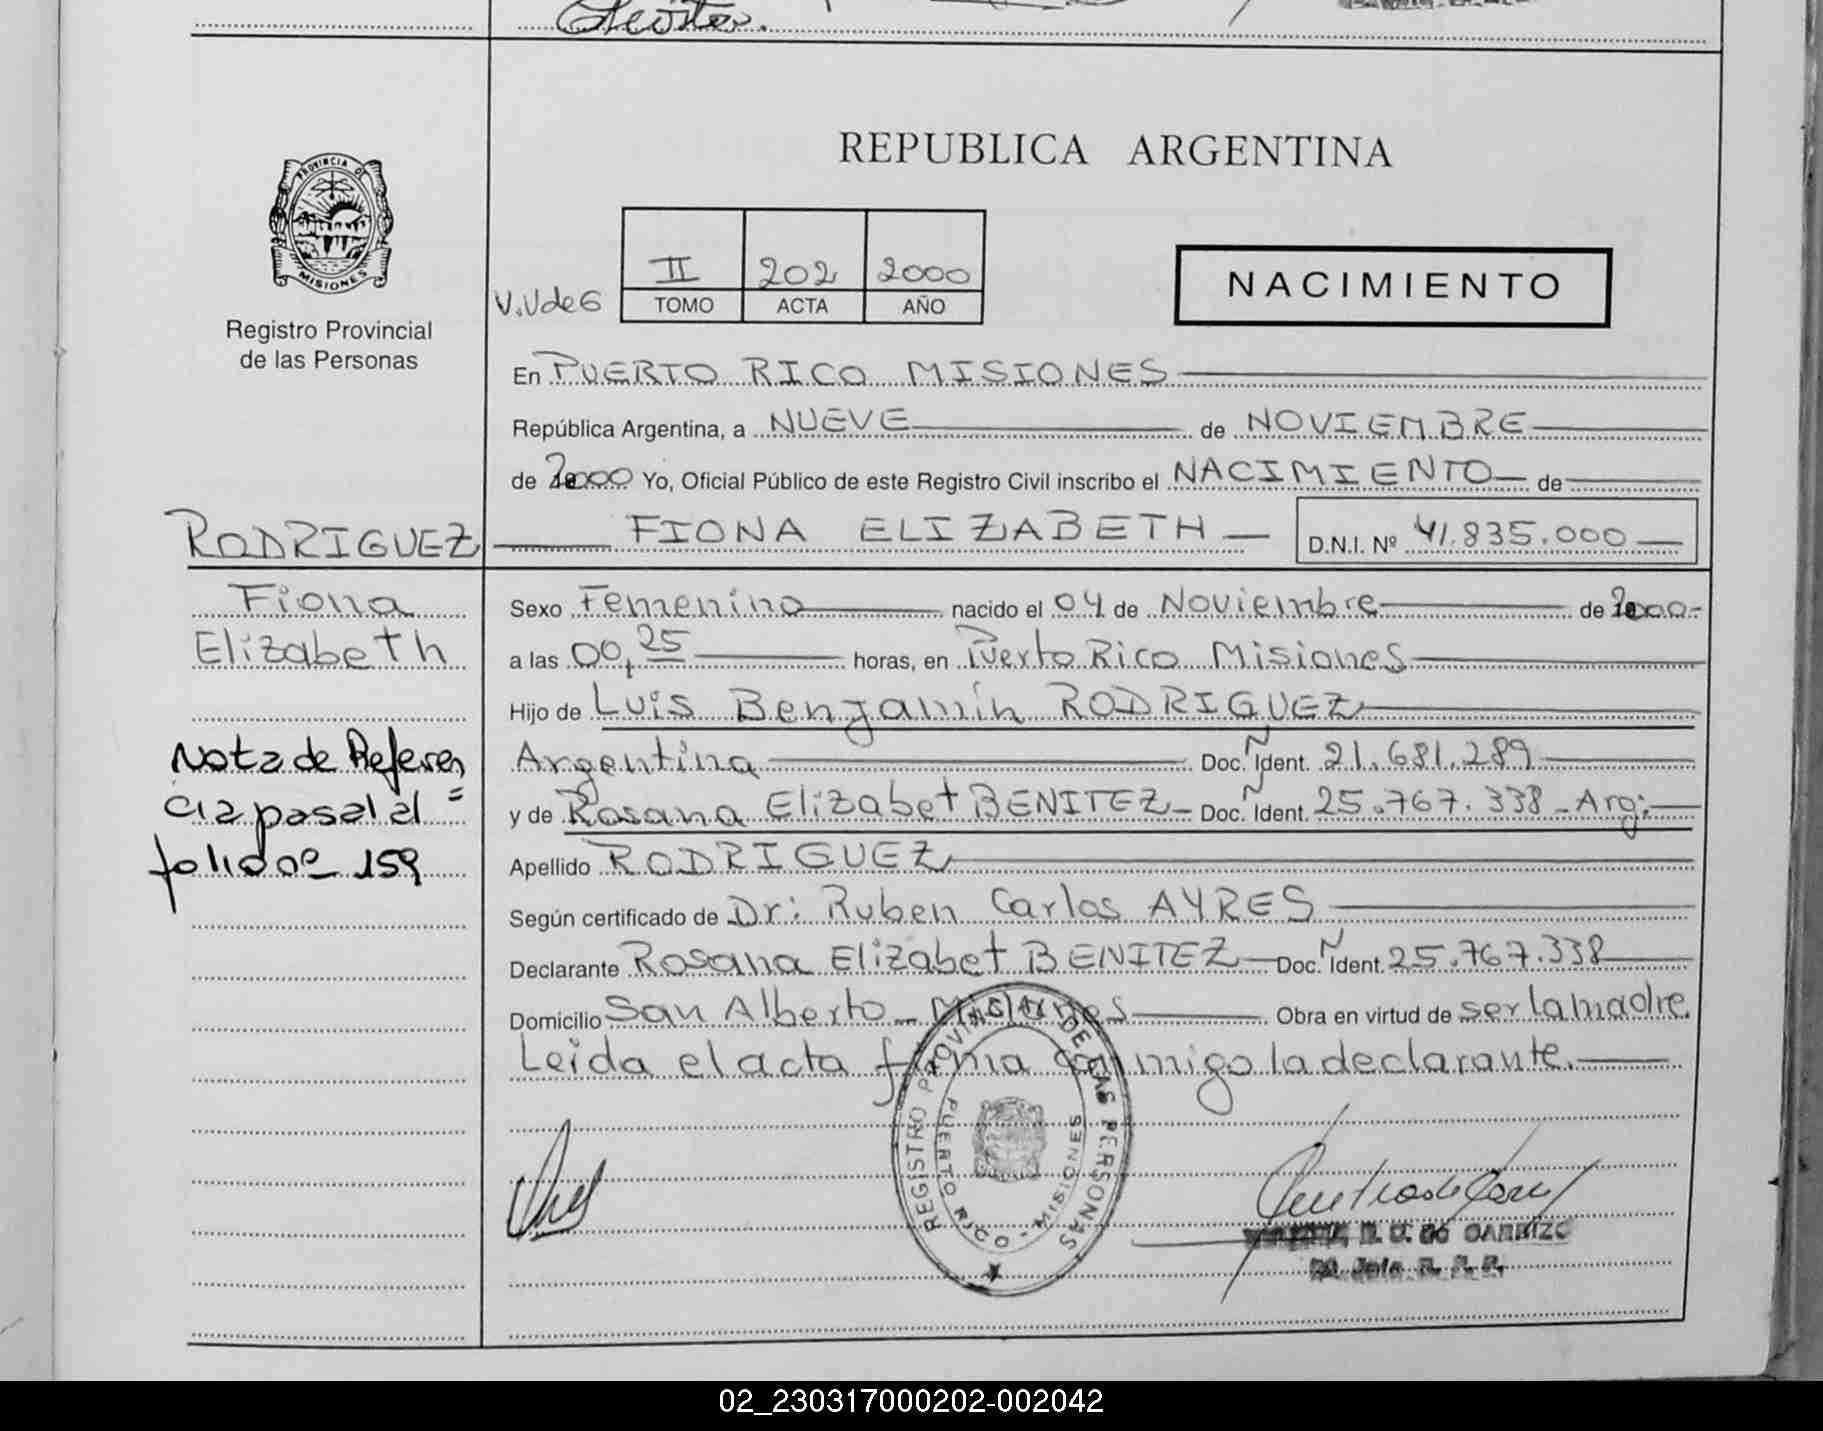 PROVINCIA DE
MISIONES
Registro Provincial
de las Personas
REPUBLICA ARGENTINA
II 202 2000
V.V de G
TOMO ACTA AÑO
NACIMIENTO
En PUERTO RICO MISIONES
República Argentina, a NUEVE de NOVIEMBRE
de 2000 Yo, Oficial Público de este Registro Civil inscribo el NACIMIENTO de
RODRIGUEZ FIONA ELIZABETH D.N.I. Nº 41.835.000
Fiona
Elizabeth
Nota de Referen
cia pasa al al =
folio nº 159
Sexo Femenino nacido el 04 de Noviembre de 2000-
a las 00,25 horas, en Puerto Rico Misiones
Hijo de Luis Benjamín RODRIGUEZ
Argentina Doc. Ident. 21.681.289
y de Rosana Elizabet BENITEZ - Doc. Ident. 25.767.338 - Arg:
Apellido RODRIGUEZ
Según certificado de Dr: Ruben Carlos AYRES
Declarante Rosana Elizabet BENITEZ Doc. Ident. 25.767.338
Domicilio San Alberto - Misiones Obra en virtud de ser la madre.
Leida el acta firma conmigo la declarante.
REGISTRO PROVINCIAL DE LAS PERSONAS
PUERTO RICO - MISIONES
02_230317000202-002042